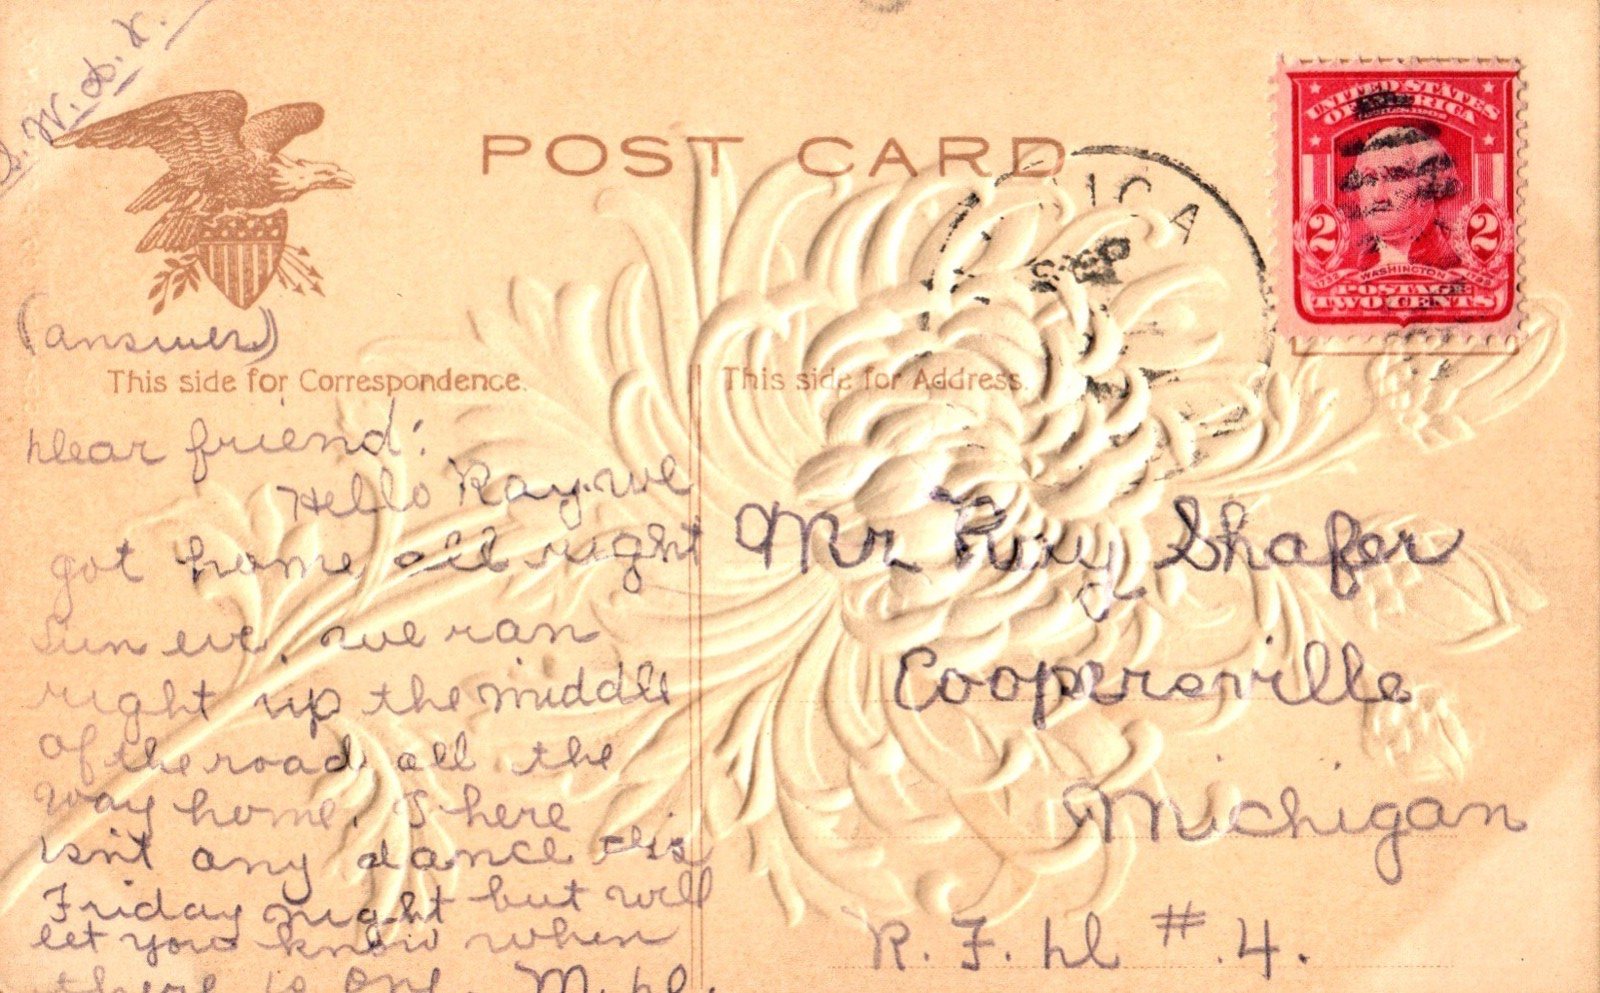 POST CARD
UNITED STATES
OF AMERICA
2 2
WASHINGTON
POSTAGE
TWO CENTS
SEP
(answer)
This side for Correspondence.
Dear friend:
Hello Ray. we
got home all right
Sun eve. we ran
right up the middle
of the road all the
way home. There
isn't any dance this
Friday night but will
let you know when
there is one. M. D.
This side for Address.
Mr Ray Shafer
Coopersville
Michigan
R. F. D #.4.